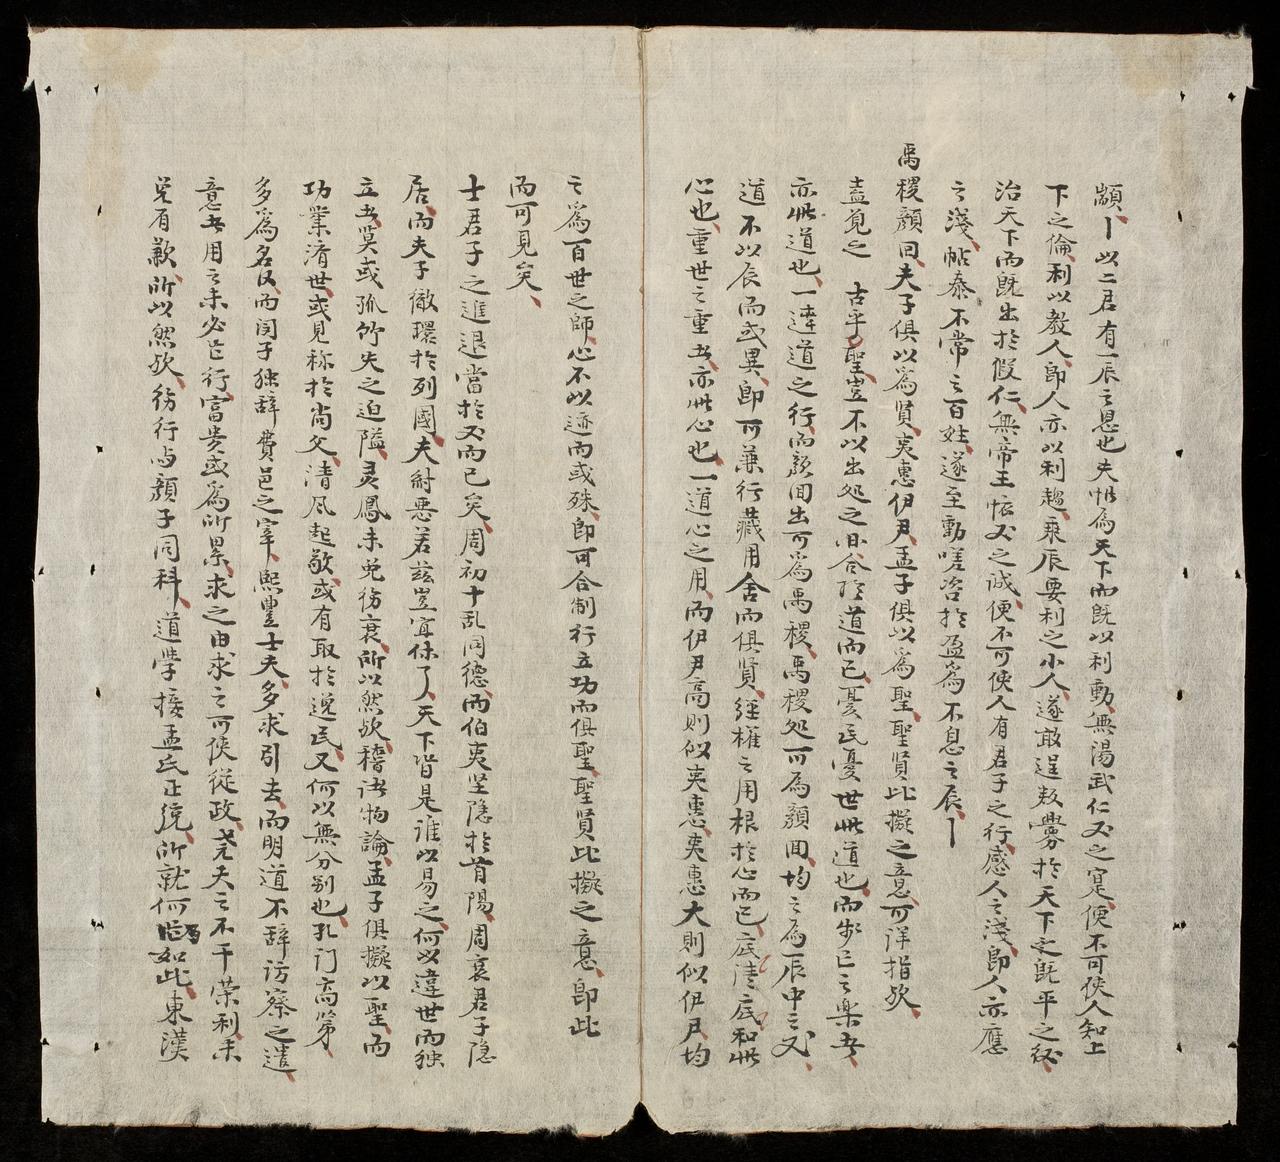 顓丨以二君有一辰之恩也夫惟為天下而既以利動無湯武仁义之寔便不可使人知上
下之倫利以教人即人亦以利趨乘辰要利之小人遂敢逞敖釁於天下之既平之後
治天下而既出於假仁無帝王恠义之誠便不可使人有君子之行感人之淺即人亦應
之淺帖泰不常之百姓遂至動嗟咨於盈為不息之辰丨
禹稷顏回夫子俱以為賢夷惠伊尹孟子俱以為聖聖賢比擬之意可详指欤
盖覓之 古乎聖豈不以出処之迹合於道而已憂民憂世此道也而安己之樂者
亦此道也一達道之行而顏回出可為禹稷禹稷処可為顏回均之為一辰中之义
道不以辰而或異即可兼行藏用舍而俱賢經權之用根於心而已底清底和此
心也重世之重者亦此心也一道心之用而伊尹高則似夷惠夷惠大則似伊尹均
之爲百世之師心不以迹而或殊即可合制行立功而俱聖聖賢比擬之意即此
而可見矣
士君子之進退當於义而已矣周初十乱同德而伯夷坚隐於首陽周衰君子隐
居而夫子徹環於列國夫紂恶若兹豈宜休了天下皆是誰以易之何以違世而独
立者莫或孤竹失之迫隘灵鳳未免彷衰所以然欤稽诸物論孟子俱擬以聖而
功業済世或見称於尚父清风起敬或有取於逸民又何以無分别也孔门高第
多爲名仅而闵子独辞費邑之宰熙豊士夫多求引去而明道不辞访察之遣
意者用之未必㠯行富贵或爲所累求之由求之可使従政尧夫之不干荣利未
免有歉所以然欤彷行与顏子同科道学接孟氏正統所就何㠯如此東漢